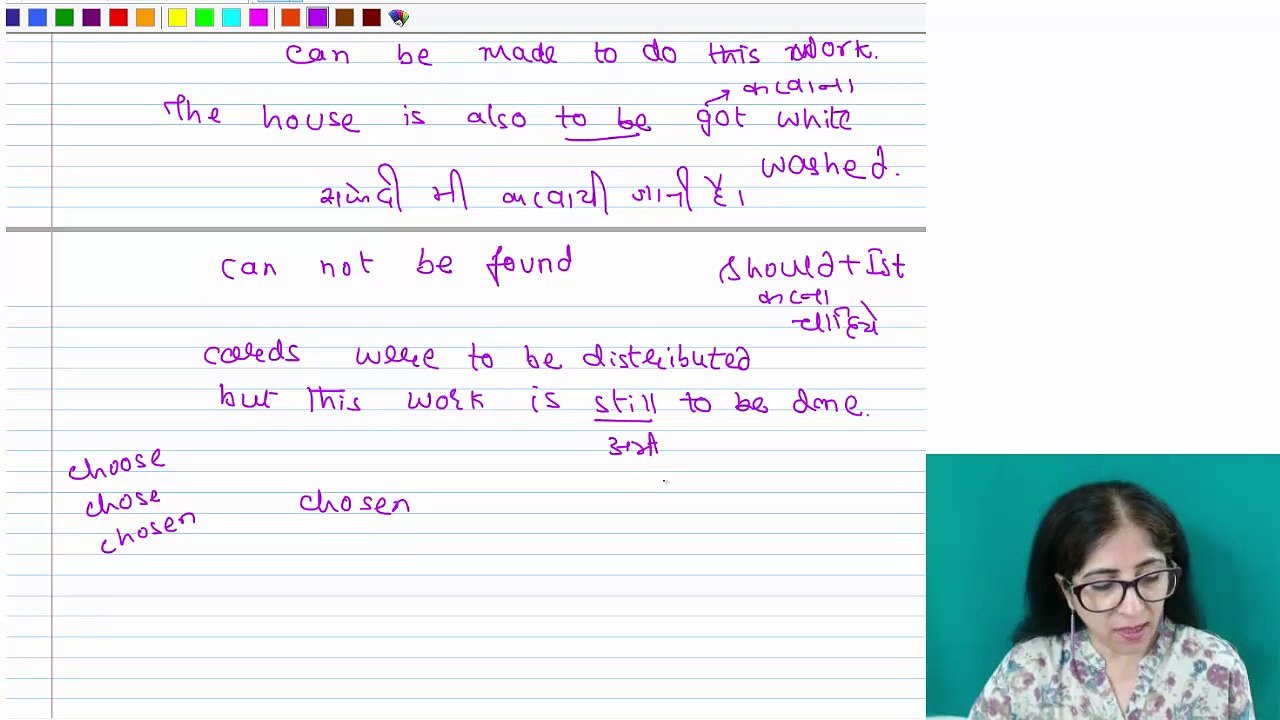 can be made to do this work.
करवाना
The house is also to be got white
washed.
सफेदी भी करवायी जानी है।
can not be found
should + Ist
करना
चाहिये
cards were to be distributed
but this work is still to be done.
अभी
choose
chose
chosen
chosen